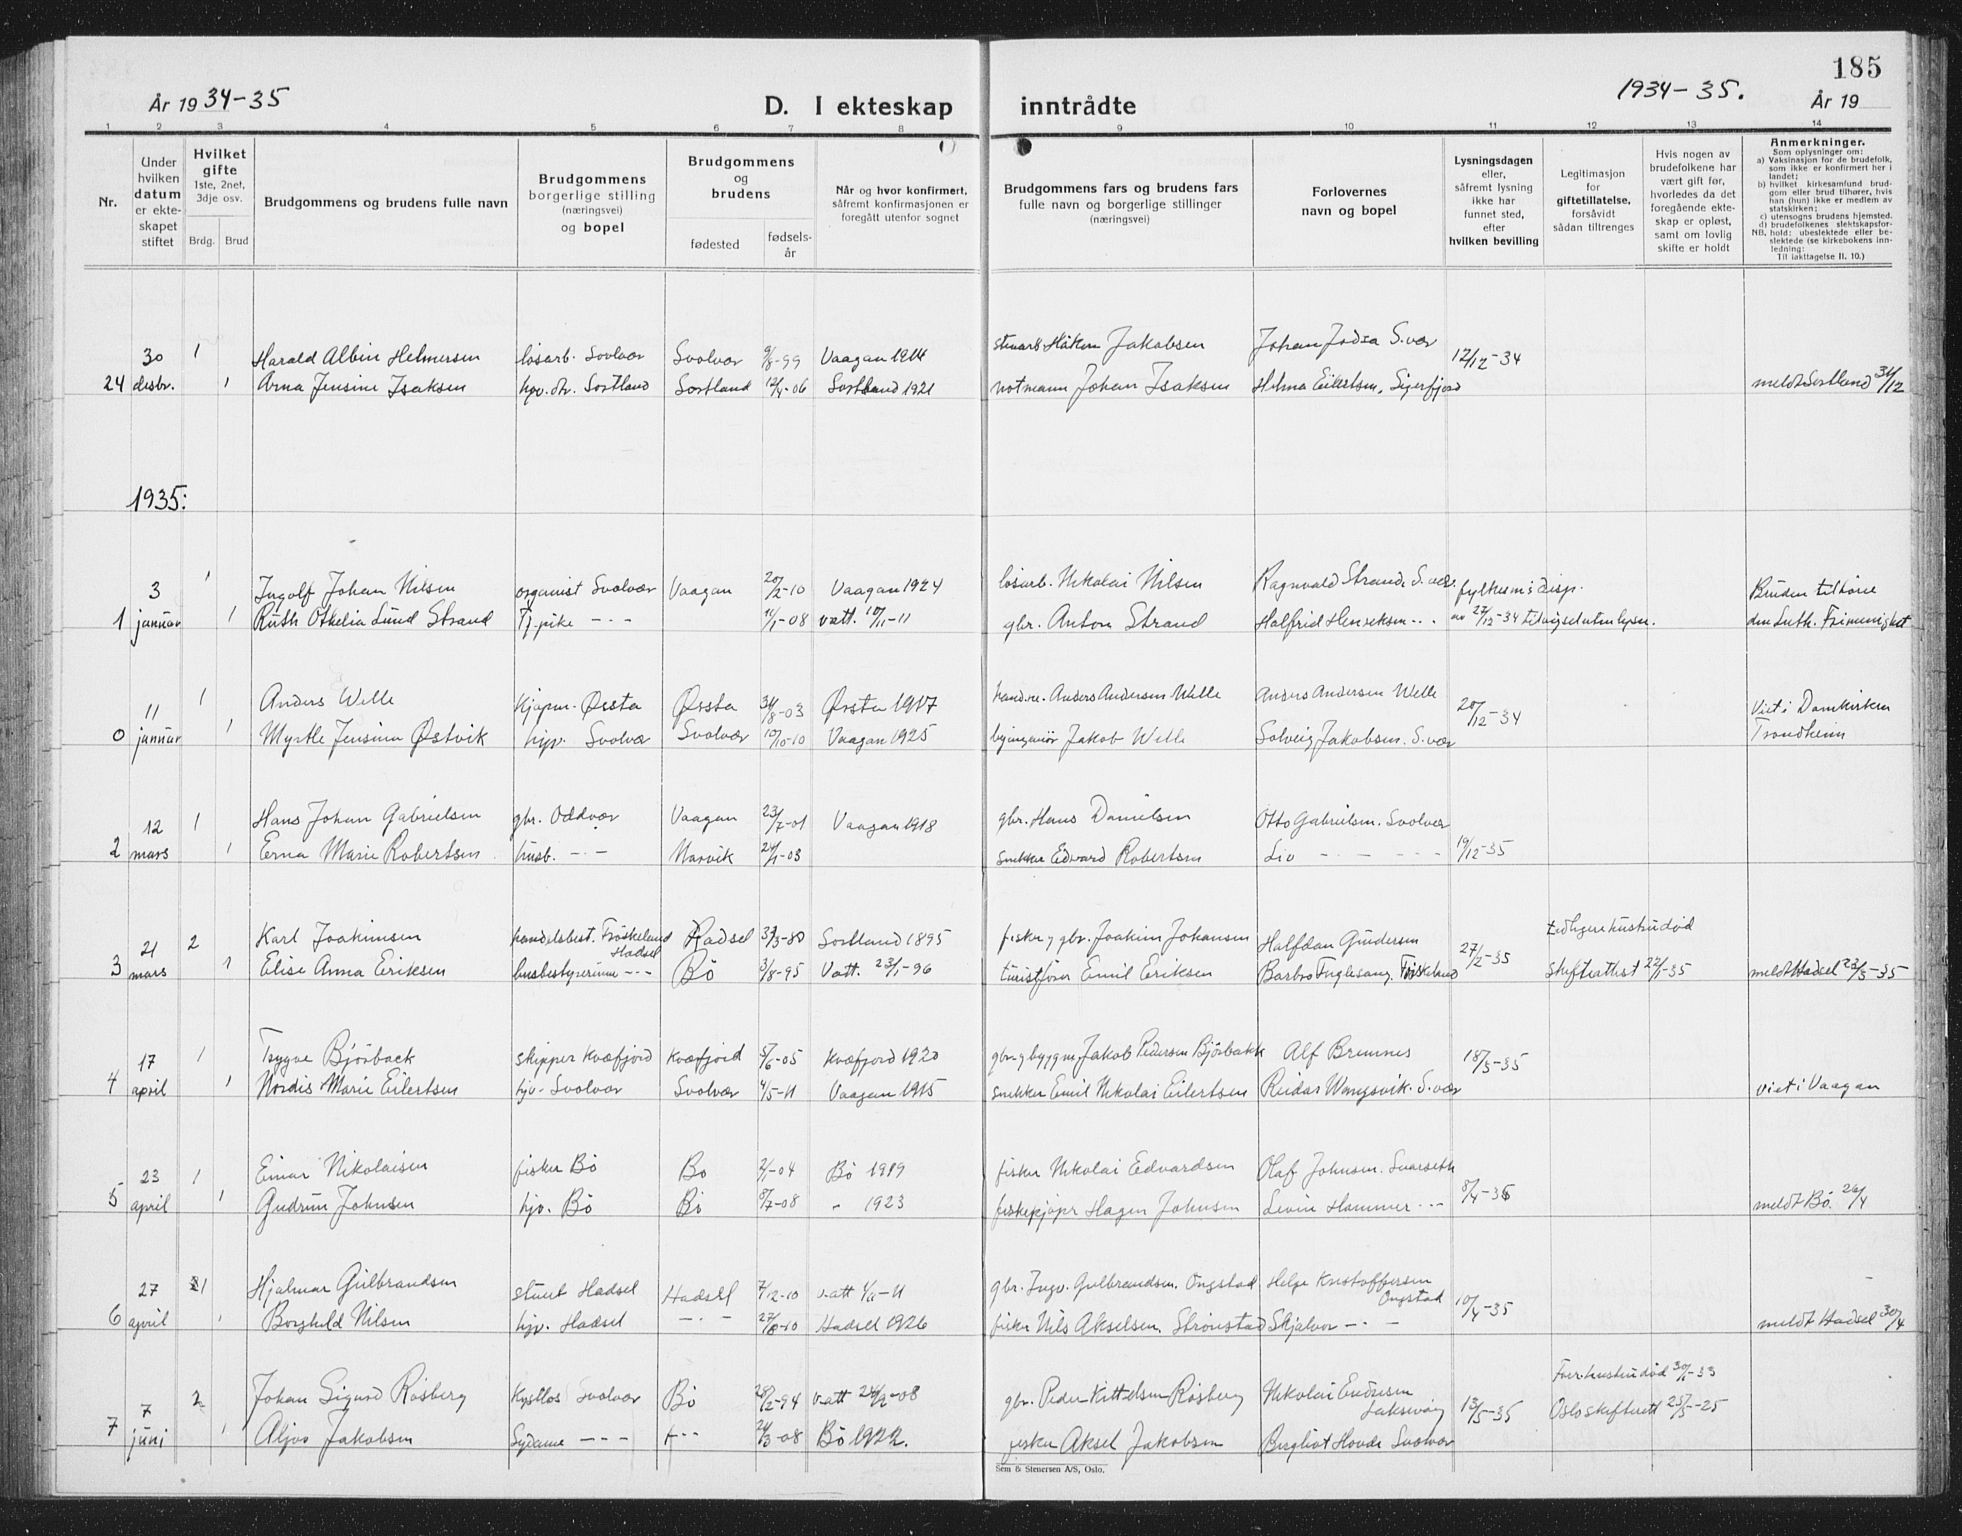 185
År 1934-35
D. I ekteskap inntrådte
1934-35. År 19
1 2 3 4 5 6 7 8 9 10 11 12 13 14
Nr.
Under hvilken datum er ekteskapet stiftet
Hvilket gifte 1ste, 2net, 3dje osv.
Brdg. Brud
Brudgommens og brudens fulle navn
Brudgommens borgerlige stilling (næringsvei) og bopel
Brudgommens og brudens
fødested
fødselsår
Når og hvor konfirmert, såfremt konfirmasjonen er foregått utenfor sognet
Brudgommens fars og brudens fars fulle navn og borgerlige stillinger (næringsvei)
Forlovernes navn og bopel
Lysningsdagen eller, såfremt lysning ikke har funnet sted, efter hvilken bevilling
Legitimasjon for giftetillatelse, forsåvidt sådan tiltrenges
Hvis nogen av brudefolkene har vært gift før, hvorledes da det foregående ekteskap er opløst, samt om lovlig skifte er holdt
Anmerkninger.
Som oplysninger om:
a) Vaksinasjon for de brudefolk, som ikke er konfirmert her i landet;
b) hvilket kirkesamfund brudgom eller brud tilhører, hvis han (hun) ikke er medlem av statskirken;
c) utensogns brudens hjemsted.
d) brudefolkenes slektskapsforhold: ubeslektede eller beslektede (se kirkebokens innledning:
NB. Til iakttagelse II. 10.)
30 1 Harald Albin Helmersen løsarb. Svolvær Svolvær 9/8-99 Vaagan 1914 Håkon Jakobsen Johan S.vær 12/12-34
24 desbr. 1 Arna Jensine Isaksen Sortland Sortland 12/4-06 Sortland 1921 notmann Johan Isaksen Helma Eilertsen, Sigerfjord meldt Sortland 31/12
1935:
3 1 Ingolf Johan Nilsen organist Svolvær Vaagan 20/2-10 Vaagan 1924 løsarb. Nikolai Nilsen Ragnvald Strand S.vær fylkem's disp. Bruden tilhører
1 januar 1 Ruth Othelia Lund Strand Tj.pike -- 11/1-08 vatt. 10/11-11 gbr. Anton Strand Halfrid Henriksen -- av 27/12-34 den Luth. Frimenighet
11 1 Anders Welle kjøpm. Ørsta Ørsta 31/8-03 Ørsta 1917 Anders Andersen Welle Anders Andersen Welle 20/12-34 Viet i Domkirken
0 januar 1 Myrtle Jensina Østvik hjv. Svolvær Svolvær 10/10-10 Vaagan 1925 Jakob Welle Solveig Jakobsen. S.vær Trondheim
12 1 Hans Johan Gabrielsen gbr. Oddvær Vaagan 23/7-01 Vaagan 1918 gbr. Hans Danielsen Otto Gabrielsen. Svolvær
2 mars 1 Erna Marie Robertsen husb. -- Narvik 24/1-03 snekker Edvard Robertsen Liv -- 19/12-35
21 2 Karl Joakimsen handelsbest. Frøskeland Hadsel Hadsel 31/3-80 Sortland 1895 fisker og gbr. Joakim Johansen Halfdan Gundersen 27/2-35 tidligere hustru død
3 mars 1 Elise Anna Eriksen husbestyrerinne -- Bø 3/8-95 Vatt. 23/1-96 Emil Eriksen Barbro Fuglesang, Frøskeland skifteattest 22/1-35 meldt Hadsel 23/3-35
17 1 Trygve Bjørback skipper Kvæfjord Kvæfjord 5/6-05 Kvæfjord 1920 Jakob Pedersen Bjørbakk Alf Bremnes 18/3-35
4 april 1 Nordis Marie Eilertsen hjv. Svolvær Svolvær 4/5-11 Vaagan 1915 snekker Emil Nikolai Eilertsen Reidar Wangsvik. S.vær viet i Vaagan
23 1 Einar Nikolaisen fisker Bø Bø 2/1-04 Bø 1919 fisker Nikolai Edvardsen Olaf Johnsen. Svarseth 8/4-35
5 april 1 Gudrun Johnsen hjv. Bø Bø 8/7-08 " 1923 fiskekjøper Hagen Johnsen Levin Hammer -- meldt Bø. 26/4
27 1 Hjalmar Gulbrandsen Hadsel Hadsel 7/12-10 vatt 1/11-11 gbr. Ingv. Gulbrandsen. Ongstad Helge Kristoffersen Ongstad 10/4-35
6 april 1 Borghild Nilsen hjv. Hadsel -- 27/8-10 Hadsel 1926 fisker Nils Akselsen. Strønstad Skjalvor -- meldt Hadsel 30/4
7 2 Johan Sigurd Røsberg Svolvær Bø 28/2-94 vatt 24/2-08 gbr. Peder Kittelsen Røsberg Nikolai Endresen 13/5-35 Før hustru død 30/1-33
7 juni 1 Aljos Jakobsen Sydame --- -- 24/3-08 Bø 1922. fisker Aksel Jakobsen Bergliot Hovde Svolvær Oslo skifterett 25/5-25
Sem & Stenersen A/S, Oslo.